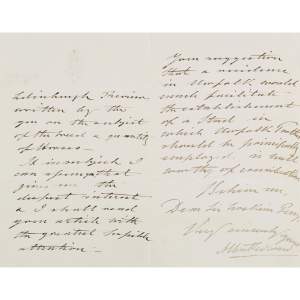 Edinburgh Review
written by the
you on the subject
of the breed & quantity
of Horses —
It is a subject I
can assure that
gives me the
deepest interest
& I shall read
your article with
the greatest possible
attention —
Your suggestion
that a residence
in would
much facilitate
the establishment
of a Stud in
which
should be principally
employed is
worthy of consideration
Believe me
Dear Sir
Very sincerely yours